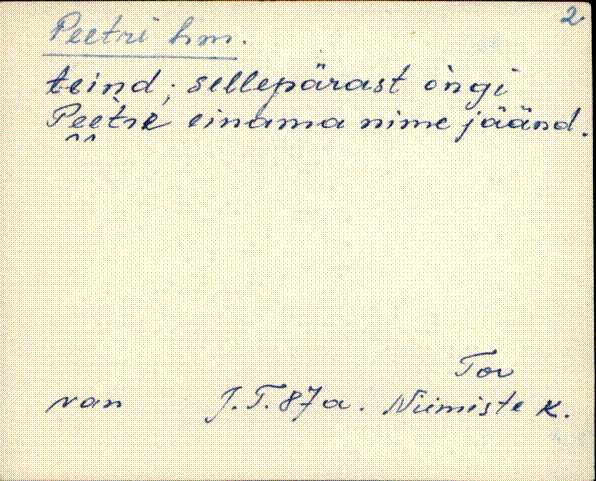 2
Peetri hm.
teind; sellepärast òngi
Peetre einama nime jäänd.
Tor
van J.T. 87 a. Niimiste k.